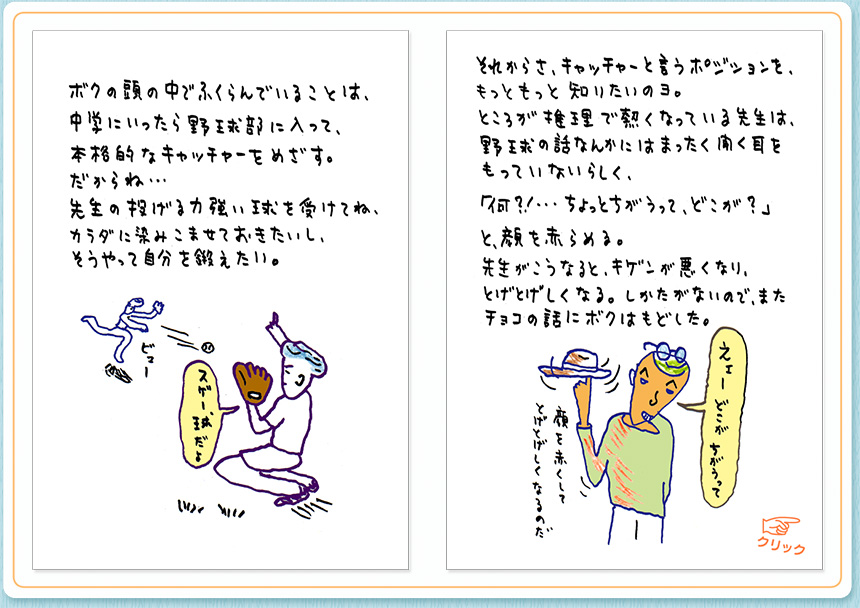 ボクの頭の中でふくらんでいることは、
中学にいったら野球部に入って、
本格的なキャッチャーをめざす。
だからね…
先生の投げる力強い球を受けてね、
カラダに染みこませておきたいし、
そうやって自分を鍛えたい。
ビュー
スゲー、球だよ
それからさ、キャッチャーと言うポジションを、
もっともっと知りたいのヨ。
ところが推理で熱くなっている先生は、
野球の話なんかにはまったく聞く耳を
もっていないらしく、
「何?!…ちょっとちがうって、どこが?」
と、顔を赤らめる。
先生がこうなると、キゲンが悪くなり、
とげとげしくなる。しかたがないので、また
チョコの話にボクはもどした。
えェー どこが ちがうって
顔を赤くして
とげとげしくなるのだ
クリック